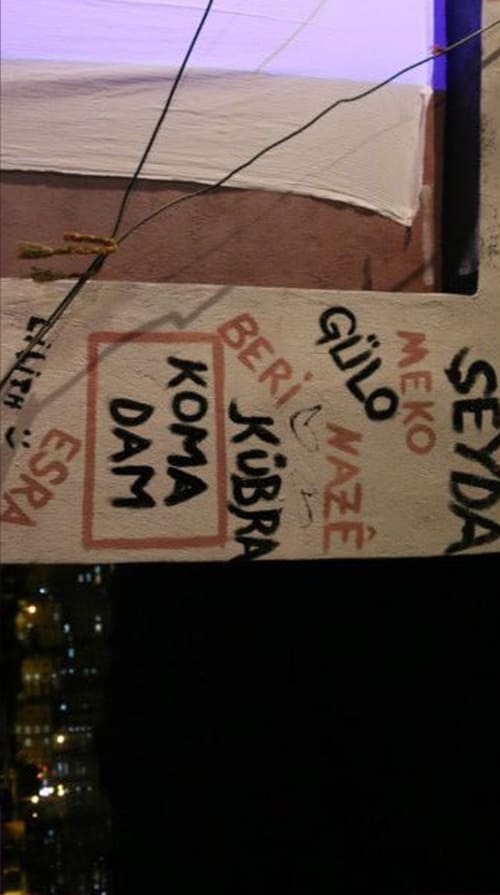 ŞEYDA
MEKO
GÜLO
NAZÊ
BERİ
KÜBRA
KOMA
DAM
ESRA
LİLİTH Ü